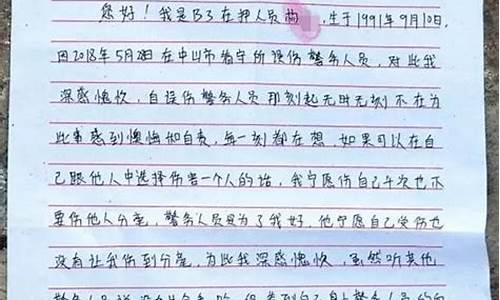 您好！我是B3在押人员尚 ，生于1991年9月10日.
因2018年5月28日在中山市看守所误伤警务人员，对此我
深感愧疚，自误伤警务人员那刻起无时无刻不在为
此事感到懊悔和自责，每一刻都在想，如果可以在自
己跟他人中选择伤害一个人的话，我宁愿伤自己千次也不
要伤他人分毫，警务人员是为了我好，他宁愿自己受伤也
没有让我伤到分毫，为此我深感愧疚，虽然听其他
警务人员说没有什么事